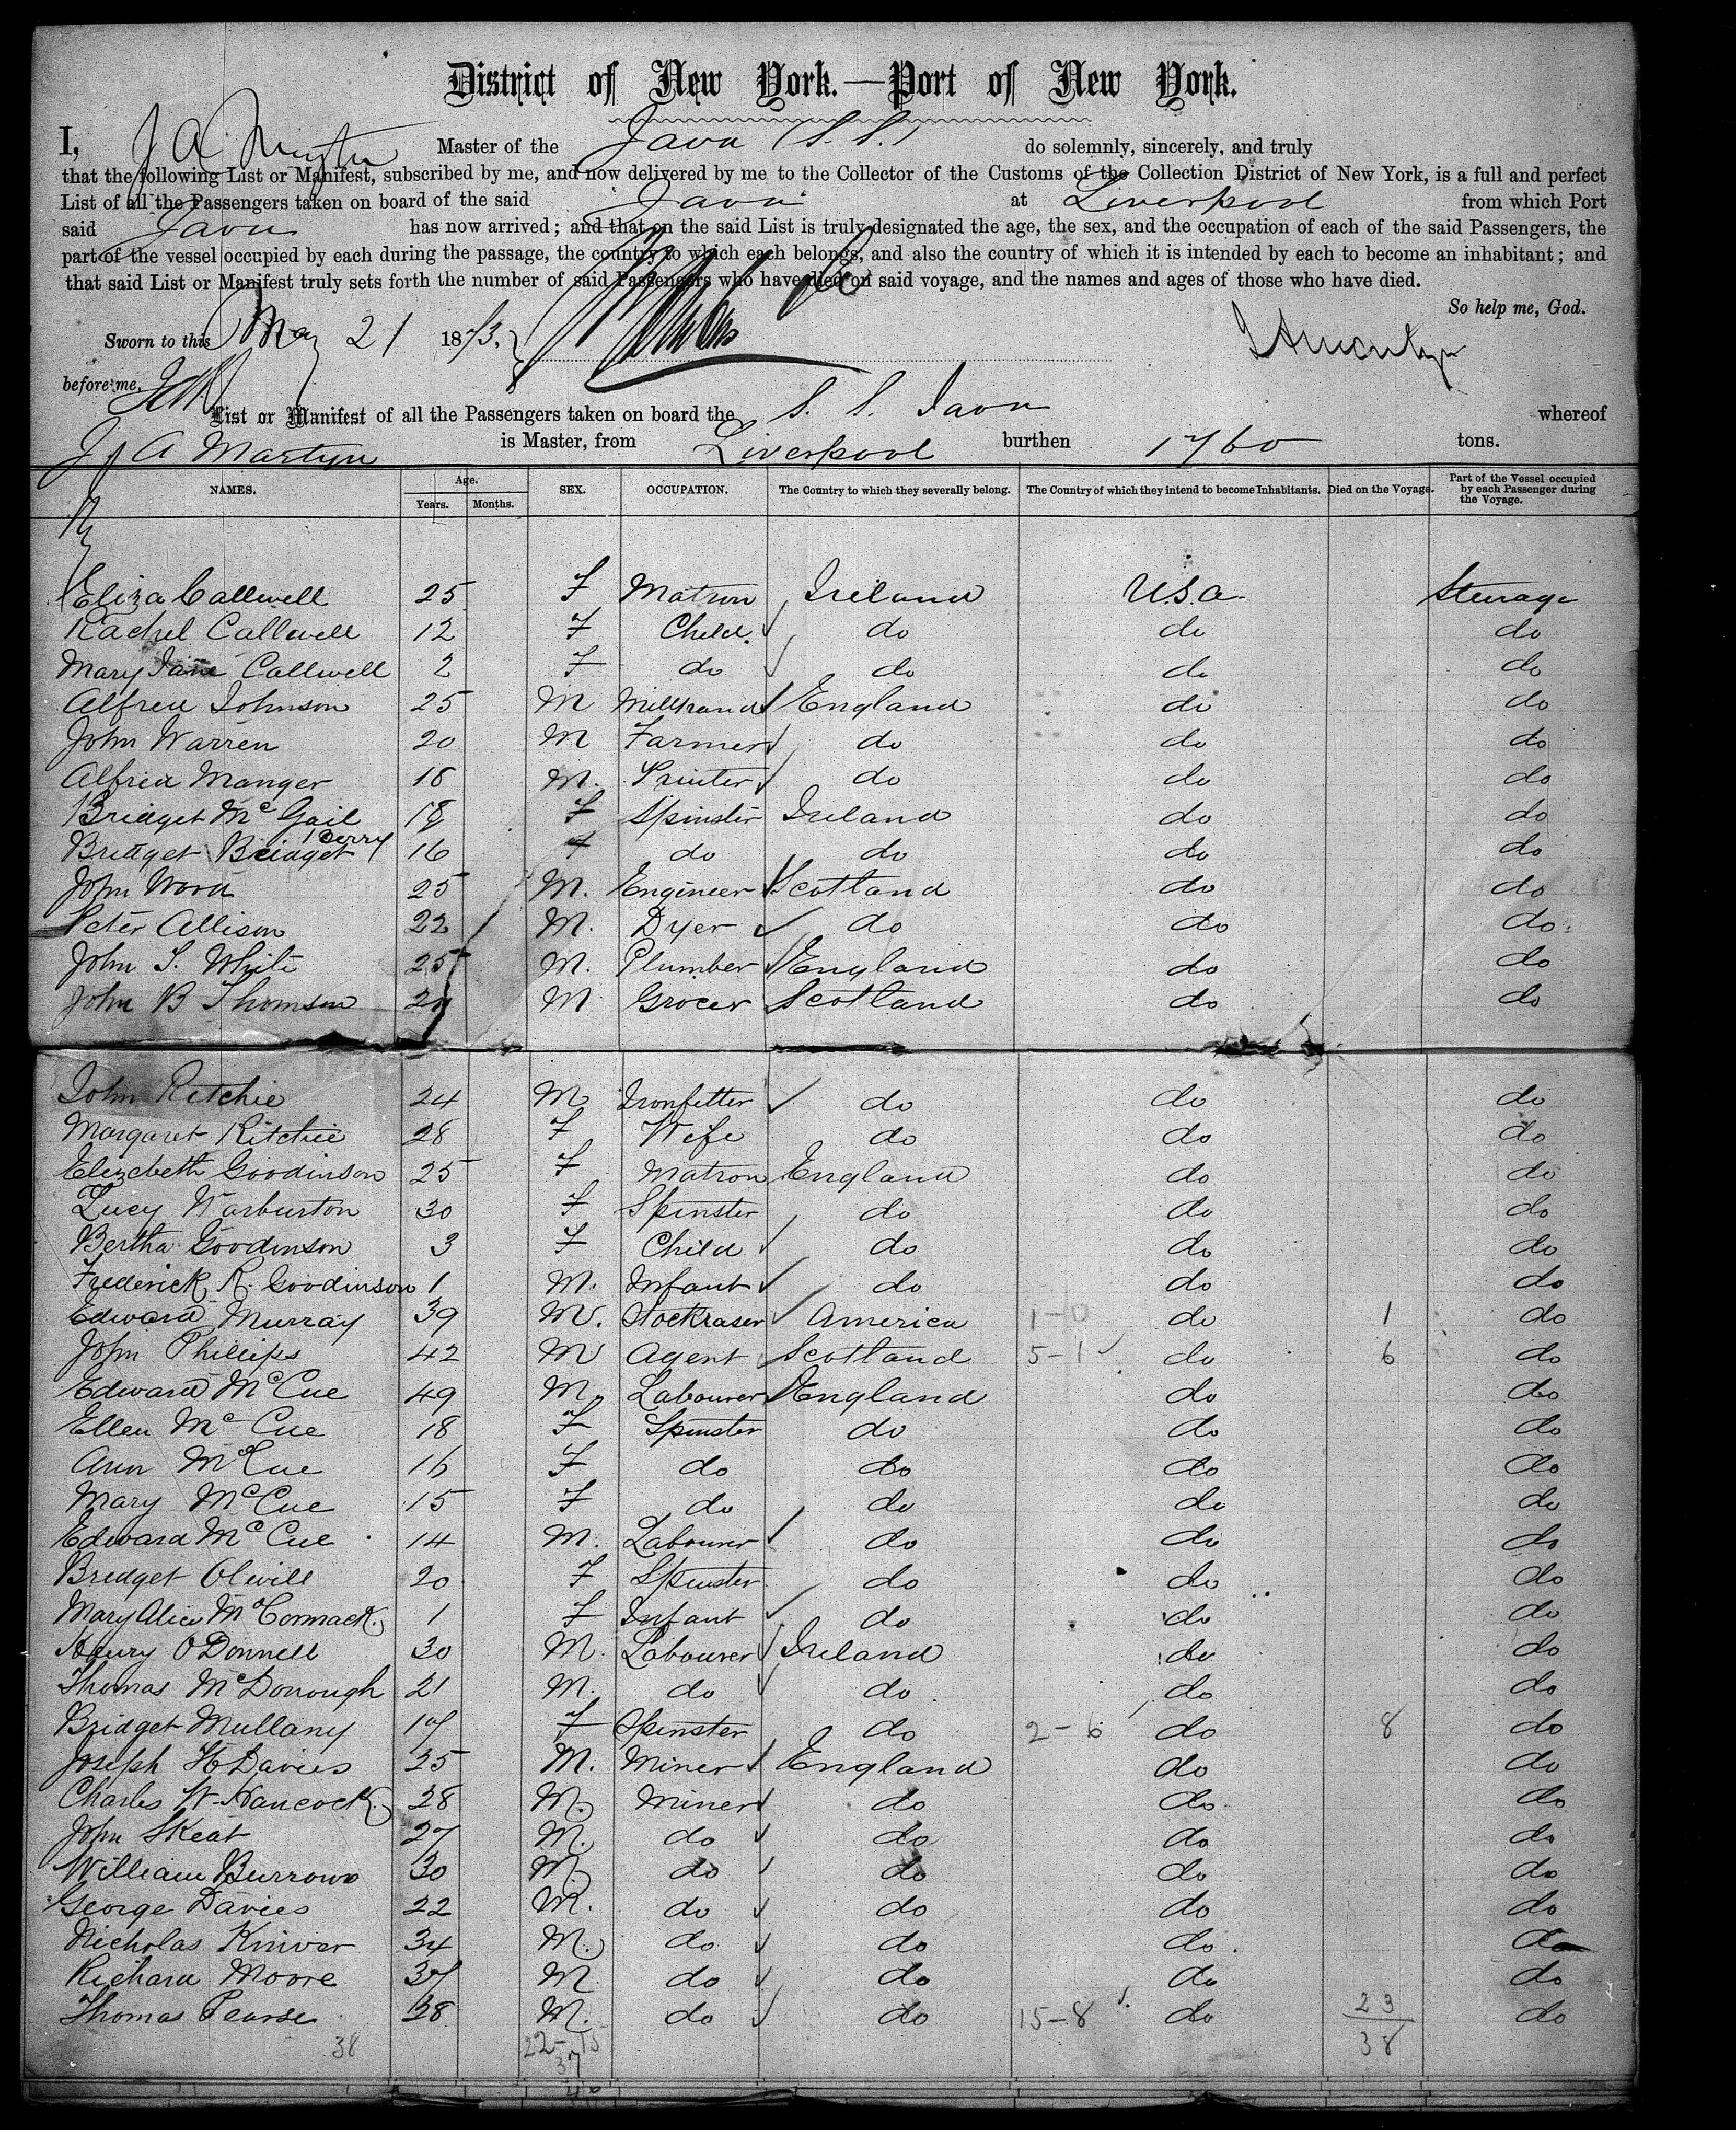 District of New York.—Port of New York.
I, J A Martyn Master of the Java (S. S.) do solemnly, sincerely, and truly
that the following List or Manifest, subscribed by me, and now delivered by me to the Collector of the Customs of the Collection District of New York, is a full and perfect
List of all the Passengers taken on board of the said Java at Liverpool from which Port
said Java has now arrived; and that on the said List is truly designated the age, the sex, and the occupation of each of the said Passengers, the
part of the vessel occupied by each during the passage, the country to which each belongs, and also the country of which it is intended by each to become an inhabitant; and
that said List or Manifest truly sets forth the number of said Passengers who have died on said voyage, and the names and ages of those who have died.
So help me, God.
Sworn to this May 21 1873, J A Martyn
before me,
List or Manifest of all the Passengers taken on board the S. S. Java whereof
J A Martyn is Master, from Liverpool burthen 1760 tons.
NAMES. Age. Years. Months. SEX. OCCUPATION. The Country to which they severally belong. The Country of which they intend to become Inhabitants. Died on the Voyage. Part of the Vessel occupied by each Passenger during the Voyage.
Eliza Callwell 25 F Matron Ireland U.S.a. Steerage
Rachel Callwell 12 F Child do do do
Mary Jane Callwell 2 F do do do do
Alfred Johnson 25 M Millhand England do do
John Warren 20 M Farmer do do do
Alfred Manger 18 M. Painter do do do
Bridget Mc Gail 18 F Spinster Ireland do do
Bridget Bridget Berry 16 F do do do do
John Wood 25 M. Engineer Scotland do do
Peter Allison 22 M. Dyer do do do
John S. White 25 M. Plumber England do do
John B Thomson 24 M Grocer Scotland do do
John Ritchie 24 M Ironfitter do do do
Margaret Ritchie 28 F Wife do do do
Elizebeth Goodinson 25 F Matron England do do
Lucy Warburton 30 F Spinster do do do
Bertha Goodinson 3 F Child do do do
Frederick R. Goodinson 1 M. Infant do do do
Edward Murray 39 M. Stockraser America 1-0 do 1 do
John Phillips 42 M Agent Scotland 5-1 do 6 do
Edward McCue 49 M. Labourer England do do
Ellen Mc Cue 18 F Spinster do do do
Ann McCue 16 F do do do do
Mary McCue 15 F do do do do
Edward Mc Cue 14 M. Labourer do do do
Bredget Olwill 20 F Spinster do do do
Mary Alice McCormack. 1 F Infant do do do
Henry O'Donnell 30 M. Labourer Ireland do do
Thomas McDonough 21 M. do do do do
Bridget Mullany 17 F Spinster do 2-6 do 8 do
Joseph H Davies 25 M. Miner England do do
Charles W. Hancock. 28 M. Miner do do do
John Skeat 27 M. do do do do
William Burrows 30 M. do do do do
George Davies 22 M. do do do do
Nicholas Kniver 34 M. do do do do
Richard Moore 37 M. do do do do
Thomas Pearse 28 M. do do 15-8 do 23 do
38 22-15 38
37